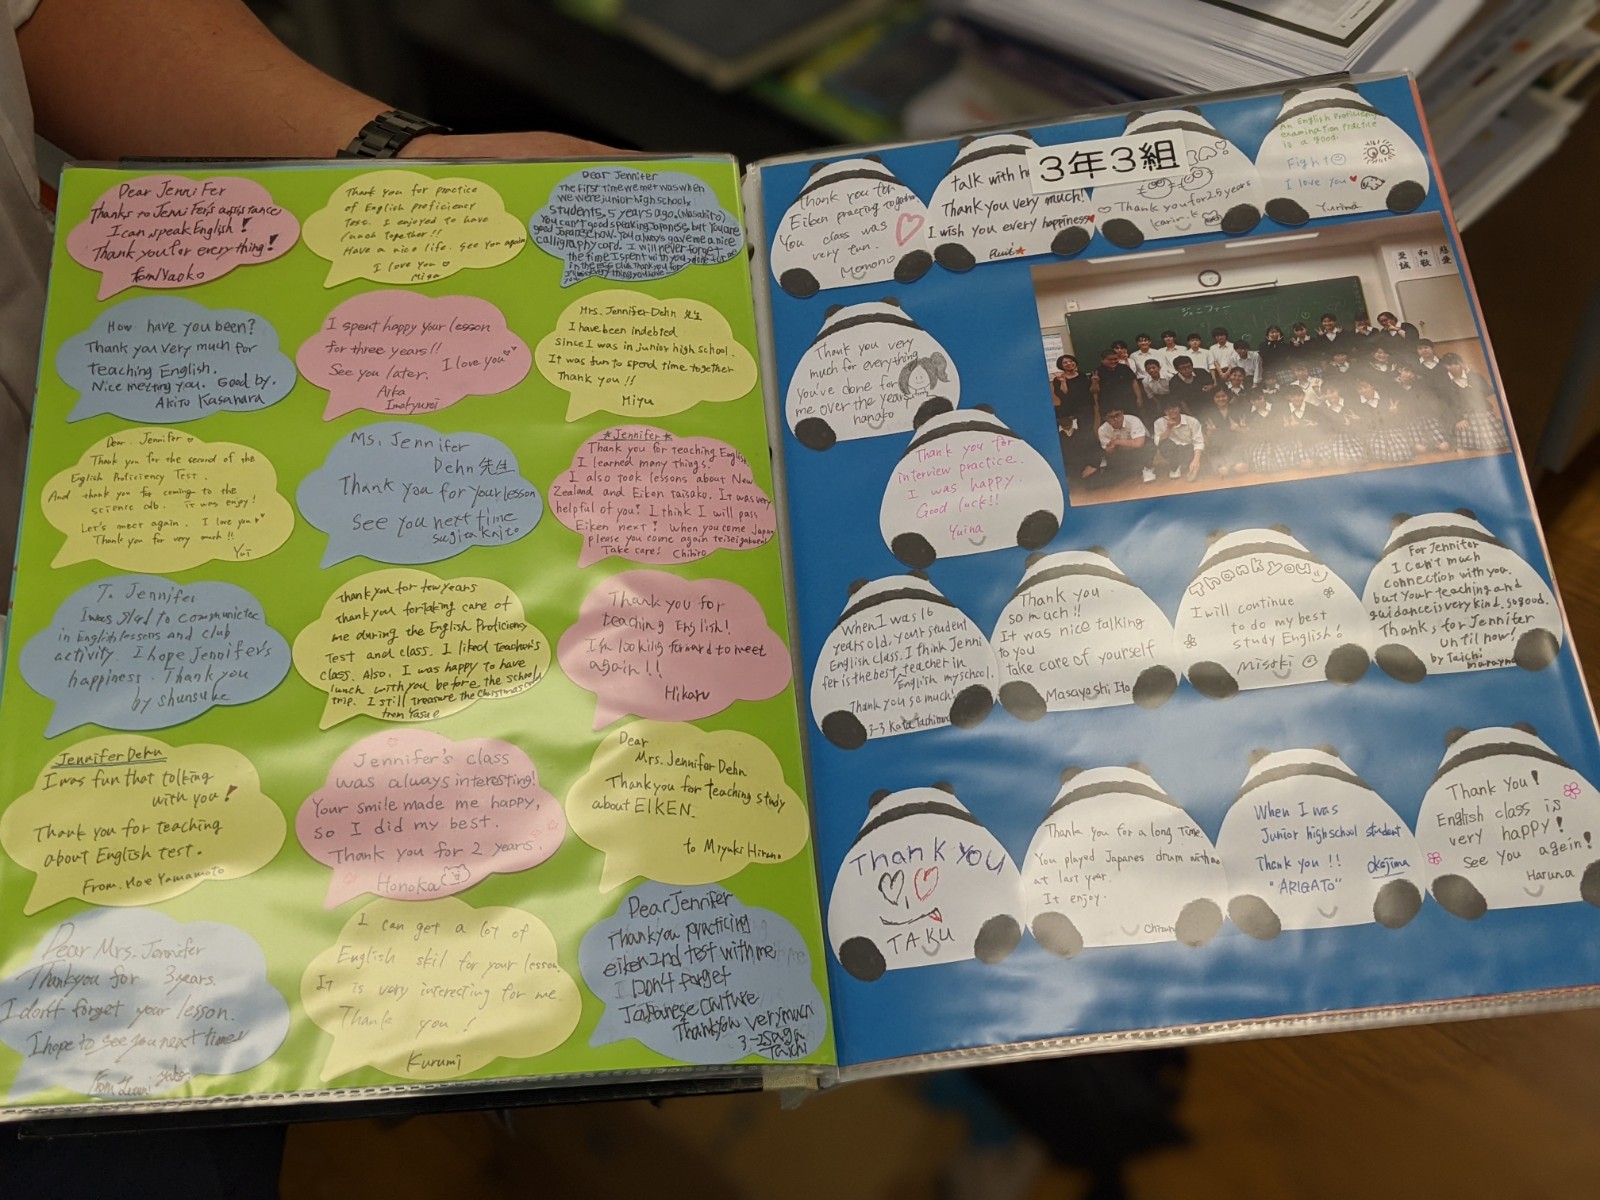 Dear Jennifer
Thanks to Jennifer's assistance
I can speak English!
Thank you for everything!
from Naoko
Thank you for practice
of English proficiency
Test. I enjoyed to have
lunch together!!
Have a nice life. See you again
I love you
Dear Jennifer
The first time we met was when
we were junior high school
students. 5 years ago.
You can't good speaking Japanese, but you are
good Japanese now. You always gave me a nice
calligraphy card. I will never forget
the time I spent with you
How have you been?
Thank you very much for
teaching English.
Nice meeting you. Good by.
Akito Kasahara
I spent happy your lesson
for three years!!
See you later. I love you
Mrs. Jennifer Dehn 先生
I have been indebted
since I was in junior high school.
It was fun to spend time together
Thank you!!
Miyu
Dear. Jennifer
Thank you for the second of the
English Proficiency Test.
And thank you for coming to the
science club. It was enjoy!
Let's meet again. I love you
Thank you for very much!!
Yui
Ms. Jennifer
Dehn 先生
Thank you for your lesson
see you next time
★Jennifer★
Thank you for teaching English.
I learned many things.
I also took lessons about New
Zealand and Eiken taisaku. It was very
helpful of you! I think I will pass
Eiken next! When you come Japan
please you come again
Take care! Chihiro
To Jennifer
I was glad to communicate
in English lessons and club
activity. I hope Jennifer's
happiness. Thank you
by shunsuke
Thank you for few years
Thank you for taking care of
me during the English Proficiency
Test and class. I liked teacher's
class. Also, I was happy to have
lunch with you before the school
trip. I still treasure the Christmas card
from Yasue
Thank you for
teaching English!
I'm looking forward to meet
again!!
Hikaru
Jennifer Dehn
I was fun that talking
with you!
Thank you for teaching
about English test.
From. Moe Yamamoto
Jennifer's class
was always interesting!
Your smile made me happy,
so I did my best.
Thank you for 2 years.
Honoka
Dear
Mrs. Jennifer Dehn
Thank you for teaching study
about EIKEN.
to Miyuki Hirano
Dear Mrs. Jennifer
Thank you for 3 years.
I don't forget your lesson.
I hope to see you next time!
I can get a lot of
English skil for your lesson.
It is very interesting for me
Thank you!
Kurumi
Dear Jennifer
Thank you practicing
eiken 2nd test with me
I Don't forget
Japanese culture
Thank you very much
3-2 Saga
Taichi
3年3組
Thank you for
Eiken practing together
You class was
very fun.
Momono
talk with
Thank you very much!
I wish you every happiness
Thank you for 2.5 years
An English Proficiency
examination practice
is a good.
Fight
I love you
Yurina
Thank you very
much for everything
you've done for
me over the years
nanako
Thank you for
interview practice.
I was happy.
Good luck!!
Yurina
ジェニファー
When I was 16
years old, your student
English class. I think Jenni
fer is the best teacher in
English my school.
Thank you so much!
Thank you
so much!!
It was nice talking
to you
take care of yourself
Masayoshi Ito
Thank you
I will continue
to do my best
study English!
For Jennifer
I can't much
connection with you.
but your teaching and
guidance is very kind, so good.
Thank, for Jennifer
until now!
by Taichi
Thank you
TAKU
Thank you for a long time.
You played Japanes drum with me
at last year.
It enjoy.
When I was
Junior high school student
Thank you!!
"ARIGATO"
okajima
Thank you!
English class is
very happy!
see you again!
Haruna